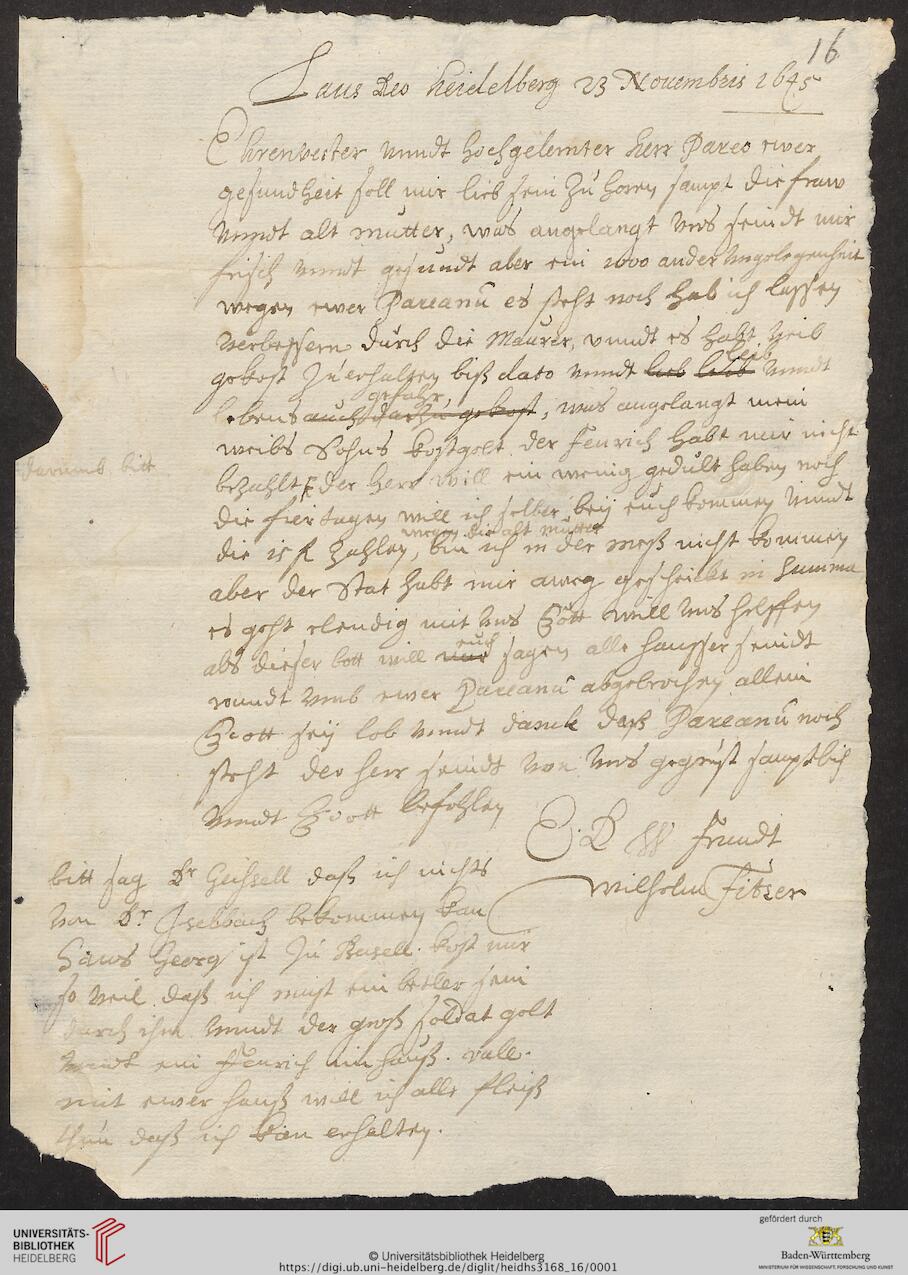 16
Laus Deo Heidelberg 23 Novembris 1645
Ehrenvester vnndt hochgelernter Herr Pareo ewer
gesundheit soll mir lieb sein zu horen sampt die fraw
vnndt alt mutter, was angelangt vns seindt mir
frisch vnndt gesundt aber ein 1000 ander vngelegenheit
wegen ewer Pareanu es steht noch hab ich lassen
verbessern durch die Maurer, vnndt es habt veil
gekost zu erhalten biß dato vnndt lieb leib vnndt
lebens gefahr, was angelangt mein
weibs Sohns kostgelt der fenrich habt mir nicht
darumb bitt
bezahlt der Herr will ein wenig gedult haben noch
die fiertagen will ich selber beij euch kommen vnndt
wegen die alt mutter
die 15 f zahlen, bin ich in der meß nicht kommen
aber der Stat habt mir aweg geschickt in summa
es geht elendig mit vns Gott will vns helffen
als dieser bott will euch sagen alle heusser seindt
rundt vmb ewer Pareanu abgebrochen allein
Gott seij lob vnndt danck daß Pareanu noch
steht der Herr seindt von vns gegrust sampthlich
vnndt Gott befohlen
E. D W Frundt
Wilhelm Fitzer
bitt sag Dr Geissell daß ich nichts
von Dr Isebbach bekommen kan
Hans Georg ist zu Basell kost mir
so veil daß ich must ein betler sein
durch ihn vnndt der groß soldat gelt
vnndt ein fenrich im hauß.
mit ewer hauß will ich alle fleiß
thun daß ich kan erhalten.
UNIVERSITÄTS-
BIBLIOTHEK
HEIDELBERG
© Universitätsbibliothek Heidelberg
https://digi.ub.uni-heidelberg.de/diglit/heidhs3168_16/0001
gefördert durch
Baden-Württemberg
MINISTERIUM FÜR WISSENSCHAFT, FORSCHUNG UND KUNST